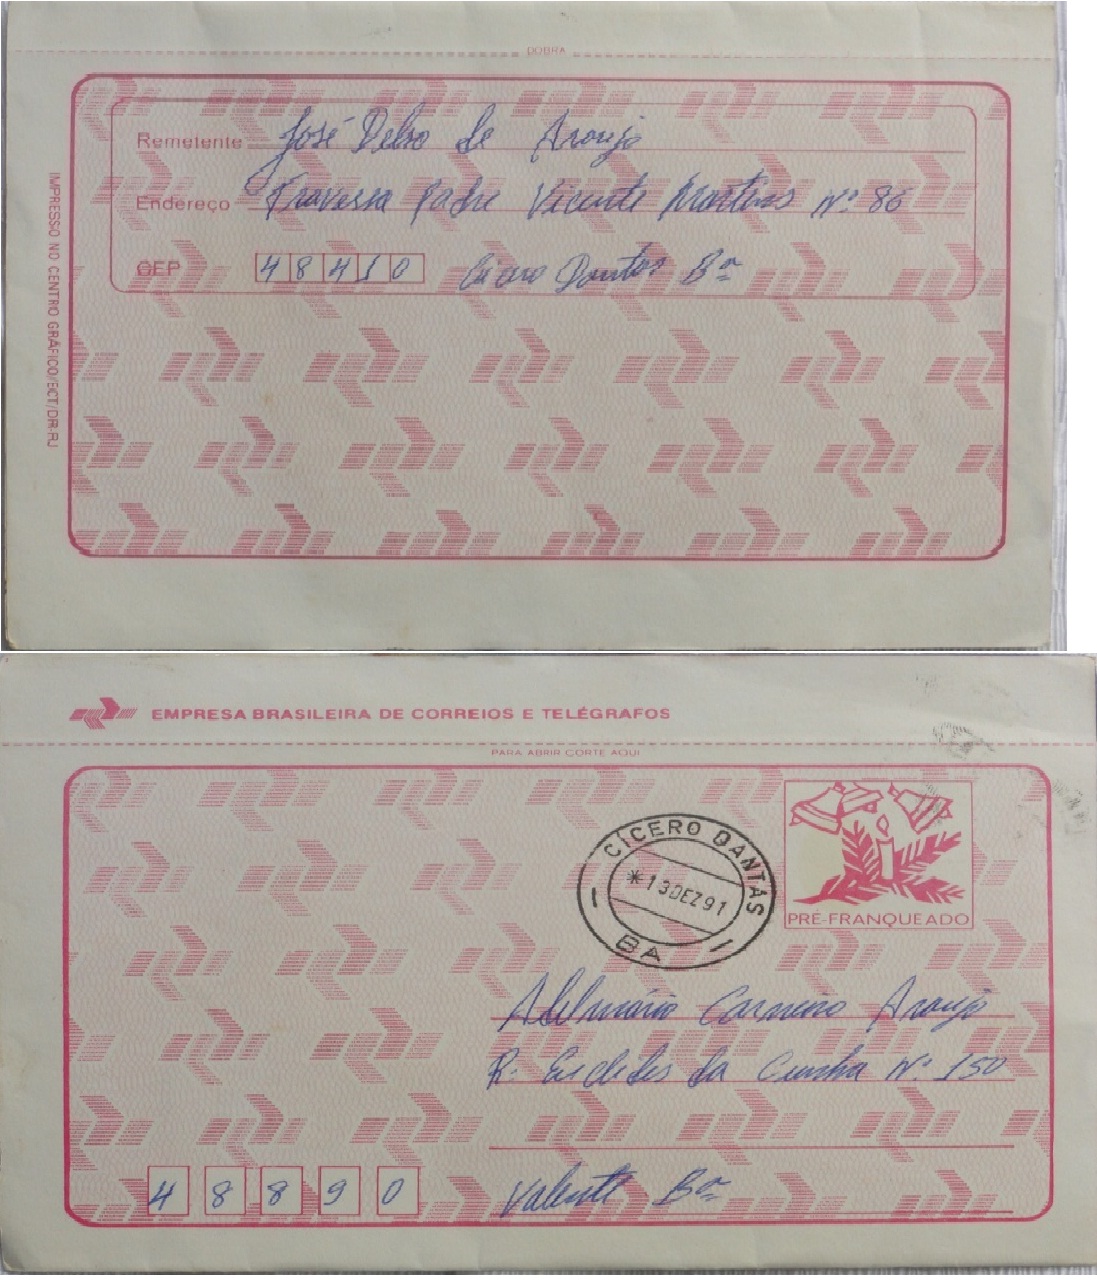 DOBRA
Remetente José Delso de Araujo
Endereço Travessa Padre Vicente Martins Nº 86
CEP 48410 Cicero Dantas Bª
IMPRESSO NO CENTRO GRÁFICO/ECT/DR-RJ
EMPRESA BRASILEIRA DE CORREIOS E TELÉGRAFOS
PARA ABRIR CORTE AQUI
CÍCERO DANTAS
*13DEZ91
BA
PRÉ-FRANQUEADO
Adelmário Carneiro Araujo
R: Euclides da Cunha Nº 150
48890 Valente Bª